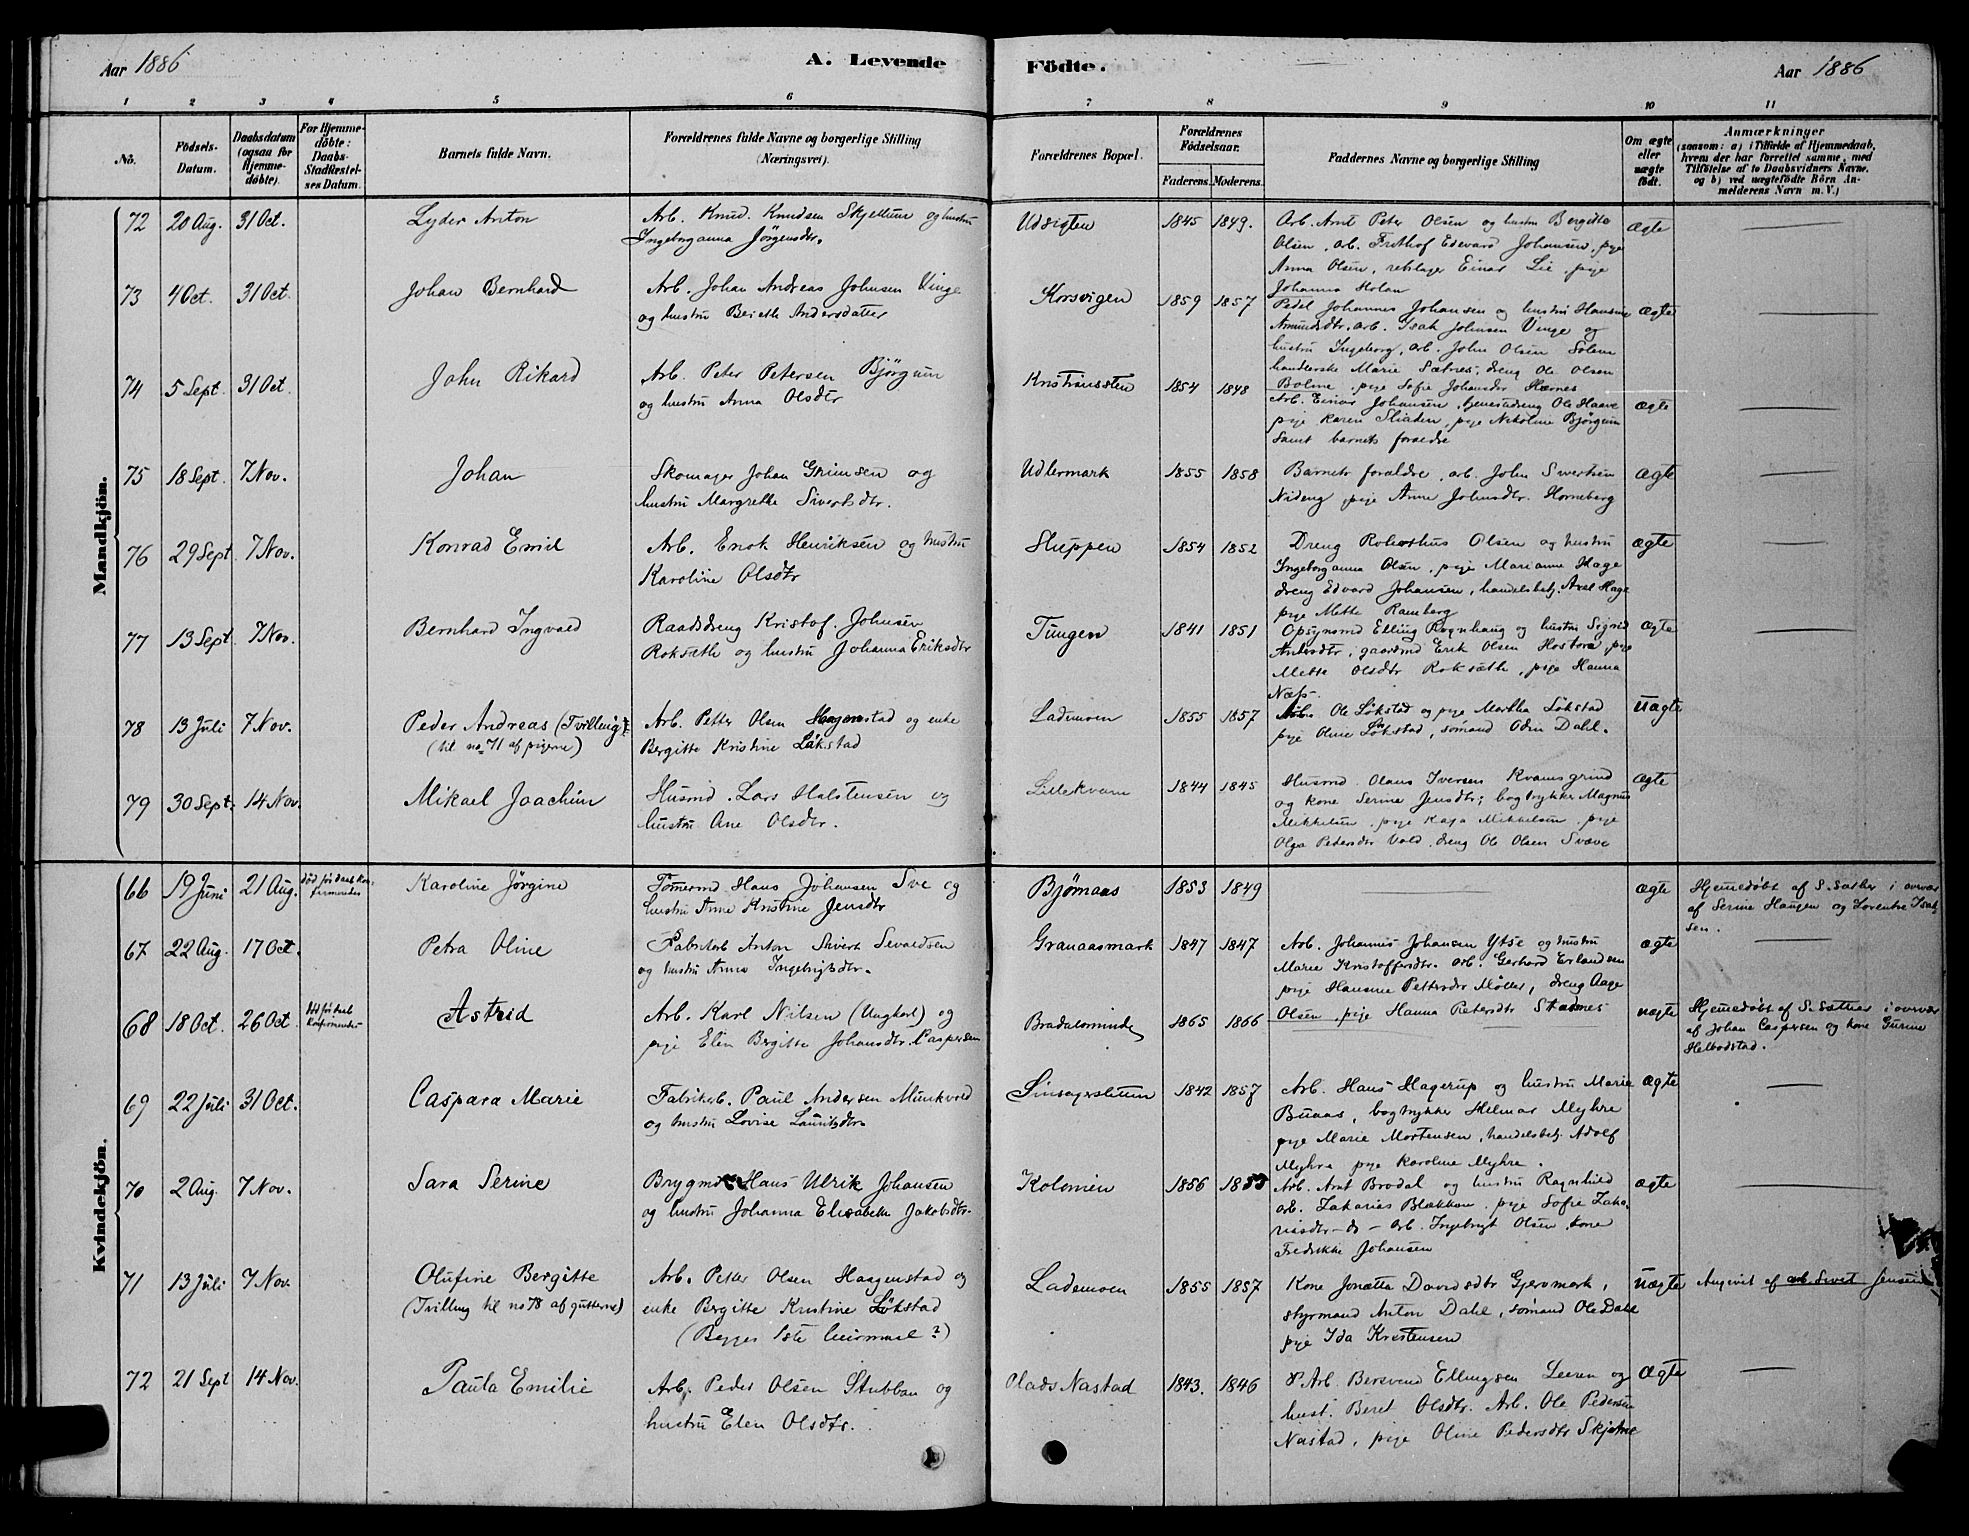 Aar 1886
A. Levende Födte.
Aar 1886
1 2 3 4 5 6 7 8 9 10 11
No.
Födsels-Datum.
Daabsdatum (ogsaa for Hjemme-döbte).
For Hjemme-döbte: Daabs-Stadfæstel-ses Datum.
Barnets fulde Navn.
Forældrenes fulde Navne og borgerlige Stilling (Næringsvei).
Forældrenes Bopæl.
Forældrenes Födselsaar.
Faderens. Moderens.
Faddernes Navne og borgerlige Stilling
Om ægte eller uægte födt.
Anmærkninger
(saasom: a) i Tilfælde af Hjemmedaab,
hvem der har forrettet samme, med
Tilföielse af to Daabsvidners Navne.
og b) ved uægtefödte Börn An-
melderens Navn m. V.)
Mandkjön.
72 20 Aug. 31 Oct. Lyder Anton
Arb. Knud Knudsen Skjellum og hustru
Ingeborganna Jörgensdtr.
Udsigten 1845 1849.
Arb. Arnt Peter Olsen og hustru Bergitte
Olsen, arb. Frithof Edevard Johansen, pige
Anna Olsen, rebslager Einar Lie, pige
Johanna Holan
ægte
73 4 Oct. 31 Oct. Johan Bernhard
Arb. Johan Andreas Johnsen Vinge
og hustru Bereth Andersdatter
Korsvigen 1859 1857
Pedel Johannes Johansen og hustru Hansine
Amundsdtr, arb. Isak Johnsen Vinge og
hustru Ingeborg, arb. John Olsen Solem
handlerske Marie Sætnes, dreng Ole Olsen
Bolme, pige Sofie Johansdtr Hærnes
ægte
74 5 Sept. 31 Oct. John Rikard
Arb. Peter Petersen Bjørgum
og hustru Anna Olsdtr
Kristiansten 1854 1848
Arb. Einar Johansen, tjenestedreng Ole Haave
pige Karen Sliaden, pige Nikoline Bjørgum
samt barnets forældre
ægte
75 18 Sept. 7 Nov. Johan
Skomager Johan Grimsen og
hustru Margrethe Sivertsdtr.
Udlermark 1855 1858
Barnets forældre, arb. John Sivertsen
Nideng, pige Anne Johnsdtr. Horneberg
ægte
76 29 Sept. 7 Nov. Konrad Emil
Arb. Enok Henriksen og hustru
Karoline Olsdtr
Sluppen 1854 1852
Dreng Olsen og hustru
Ingeborganna Olsen, pige Marianne Hage
dreng Edvard Johansen, handelsbetj. Axel Hage
pige Mette Ramberg
ægte
77 13 Sept. 7 Nov. Bernhard Ingvald
Raadsdreng Kristof. Johnsen
Roksæth og hustru Johanna Eriksdtr
Tungen 1841 1851
Opsynsmd Elling Rognhaug og hustru Sigrid
Andersdtr, gaardmd Erik Olsen, pige
Mette Olsdtr Roksæth, pige Hanna
Næss.
ægte
78 13 Juli 7 Nov. Peder Andreas (Tvilling
(til no 71 af pigerne)
Arb. Petter Olsen Haagenstad og enke
Bergitte Kristine Løkstad
Lademoen 1855 1857
Arb. Ole Løkstad og pige Martha Løkstad
pige Oline Løkstad, sømand Odin Dahl.
uægte
79 30 Sept. 14 Nov. Mikael Joachim
Husmd. Lars Halstensen og
hustru Ane Olsdtr.
Lillekvam 1844 1845
Husmd Olaus Iversen Kvamsgrind
og kone Serine Jensdtr, bogtrykker Magnus
Mikkelsen, pige Kaja Mikkelsen, pige
Olga Petersdtr Vold, dreng Ole Olsen Svæve
ægte
Kvindekjön.
66 19 Juni 21 Aug. død før daab kon-
firmerdes
Karoline Jørgine
Tømmermd Hans Johansen Sve og
hustru Anne Kristine Jensdtr
Bjørnaas 1853 1849
ægte
Hjemmedøbt af S. Sæther i overvær
af Serine Haugen og Lorentse Isak-
sen.
67 22 Aug. 17 Oct. Petra Oline
Fabrikarb Anton Sivert Sevaldsen
og hustru Anna Ingebrigtsdtr.
Granaasmark 1847 1847
Arb. Johannes Johansen Ytse og hustru
Marie Kristoffersdtr. arb. Gerhard Erlandsen
pige Hansine Pettersdtr Møller, dreng Aage
Olsen, pige Hanna Petersdtr Stadsnes
ægte
68 18 Oct. 26 Oct. død før daab
konfirmerdes
Astrid
Arb. Karl Nilsen (Ungkarl) og
pige Elen Bergitte Johansdtr. Caspersen
Bradalsminde 1865 1866
uægte
Hjemmedøbt af S. Sæther i overvær
af Johan Caspersen og kone Gurine
Helbostad.
69 22 Juli 31 Oct. Caspara Marie
Fabrikarb. Paul Andersen Munkvold
og hustru Lovise Lauritsdtr.
1842 1857
Arb. Hans Hagerup og hustru Marie
Buaas, bogtrykker Helmar Myhre
pige Marie Mortensen, handelsbetj. Adolf
Myhre pige Karoline Myhre.
ægte
70 2 Aug. 7 Nov. Sara Serine
Brygmd Hans Ulrik Johansen
og hustru Johanna Elisabeth Jakobsdtr.
Kolonien 1856 1855
Arb. Arnt Brodal og hustru Ragnhild
arb. Zakarias Blækken, pige Sofie Zaka-
riasdtr - do - arb. Ingebrigt Olsen, kone
Fredrikke Johansen
ægte
71 13 Juli 7 Nov. Olufine Bergitte
(Tvilling til no 78 af gutterne)
Arb. Petter Olsen Haagenstad og
enke Bergitte Kristine Løkstad
(Begges 1ste leiermaal?)
Lademoen 1855 1857
Kone Jonetta Davidsdtr Gjervmark,
styrmand Anton Dahl, sømand Ole Dahl
pige Ida Kristensen
uægte
Angivet af arb. Sivert Jensen
72 21 Sept 14 Nov. Paula Emilie
Arb. Peder Olsen Stubban og
hustru Elen Olsdtr.
Olads Nastad 1843. 1846
Arb. Bersvend Ellingsen Leren og
hust. Beret Olsdtr. Arb. Ole Pedersen
Nastad, pige Oline Pedersdtr Skjetne
Ægte